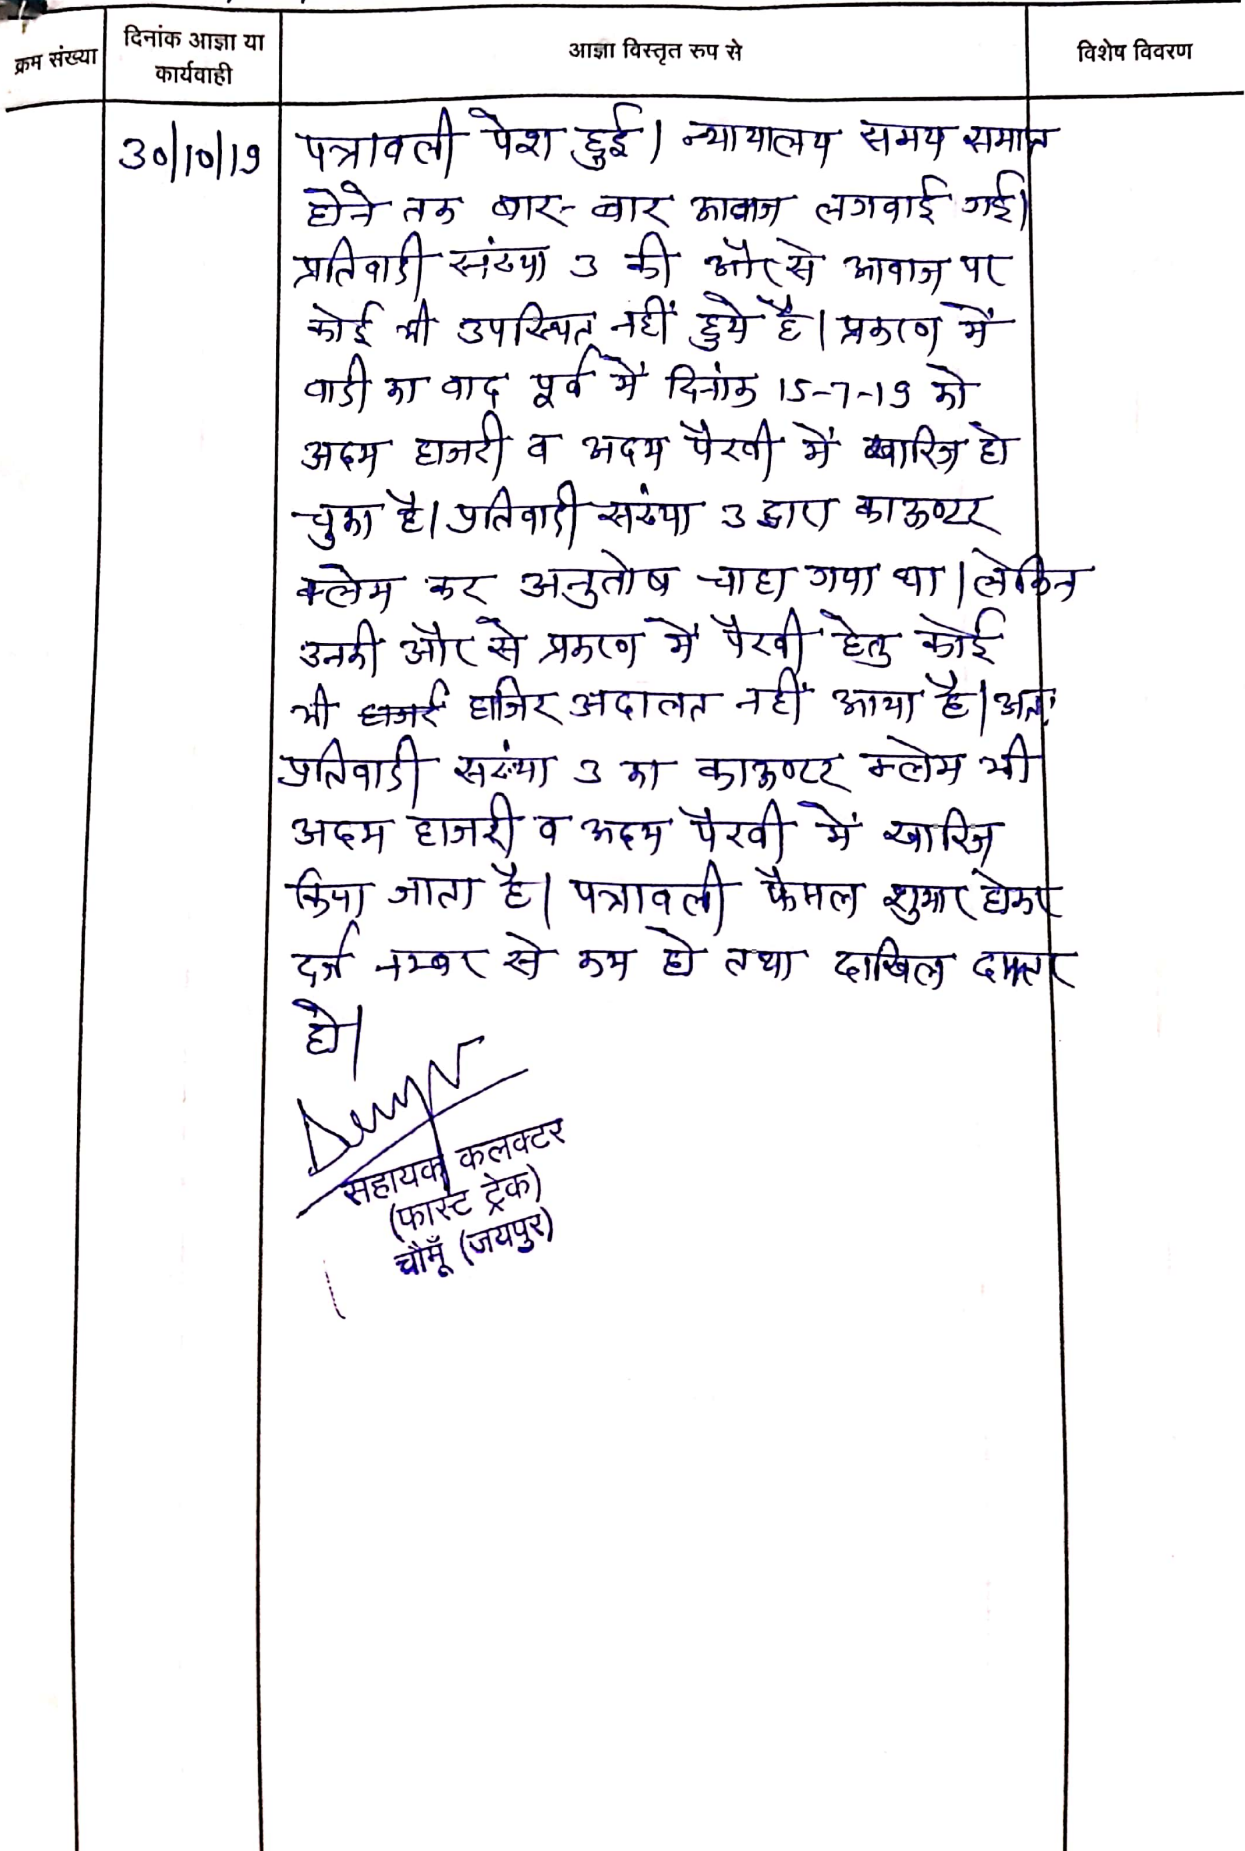 क्रम संख्या
दिनांक आज्ञा या
कार्यवाही
आज्ञा विस्तृत रुप से
विशेष विवरण
30/10/19
पत्रावली पेश हुई। न्यायालय समय समाप्त
होने तक बार-बार आवाज लगवाई गई।
प्रतिवादी संख्या 3 की और से आवाज पर
कोई भी उपस्थित नहीं हुये है। प्रकरण में
वादी का वाद पूर्व में दिनांक 15-7-19 को
अदम हाजरी व अदम पैरवी में खारिज हो
चुका है। प्रतिवादी संख्या 3 द्वारा काऊण्टर
क्लेम कर अनुतोष चाहा गया था। लेकिन
उनकी और से प्रकरण में पैरवी हेतु कोई
भी हाजिर अदालत नहीं आया है। अतः
प्रतिवादी संख्या 3 का काऊण्टर क्लेम भी
अदम हाजरी व अदम पैरवी में खारिज
किया जाता है। पत्रावली फैसल शुमार होकर
दर्ज नम्बर से कम हो तथा दाखिल दफ्तर
हो।
सहायक कलक्टर
(फास्ट ट्रेक)
चौमूँ (जयपुर)